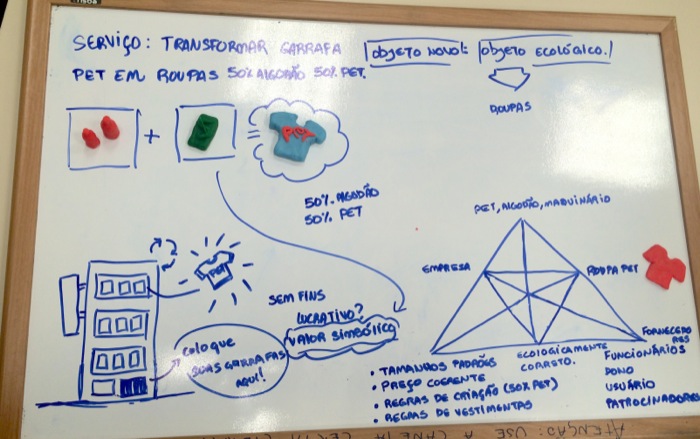 SERVIÇO: TRANSFORMAR GARRAFA
PET EM ROUPAS 50% ALGODÃO 50% PET.
OBJETO NOVO:
OBJETO ECOLÓGICO.
ROUPAS
PET
50% ALGODÃO
50% PET
PET, ALGODÃO, MAQUINÁRIO
EMPRESA
ROUPA PET
PET
SEM FINS
LUCRATIVO?
VALOR SIMBÓLICO
COLOQUE
SUAS GARRAFAS
AQUI!
ECOLOGICAMENTE
CORRETO.
FORNECEDO
RES
FUNCIONÁRIOS
DONO
USUÁRIO
PATROCINADORES
• TAMANHOS PADRÕES
• PREÇO COERENTE
• REGRAS DE CRIAÇÃO (50% PET)
• REGRAS DE VESTIMENTAS
ATENÇÃO: USE A CANETA